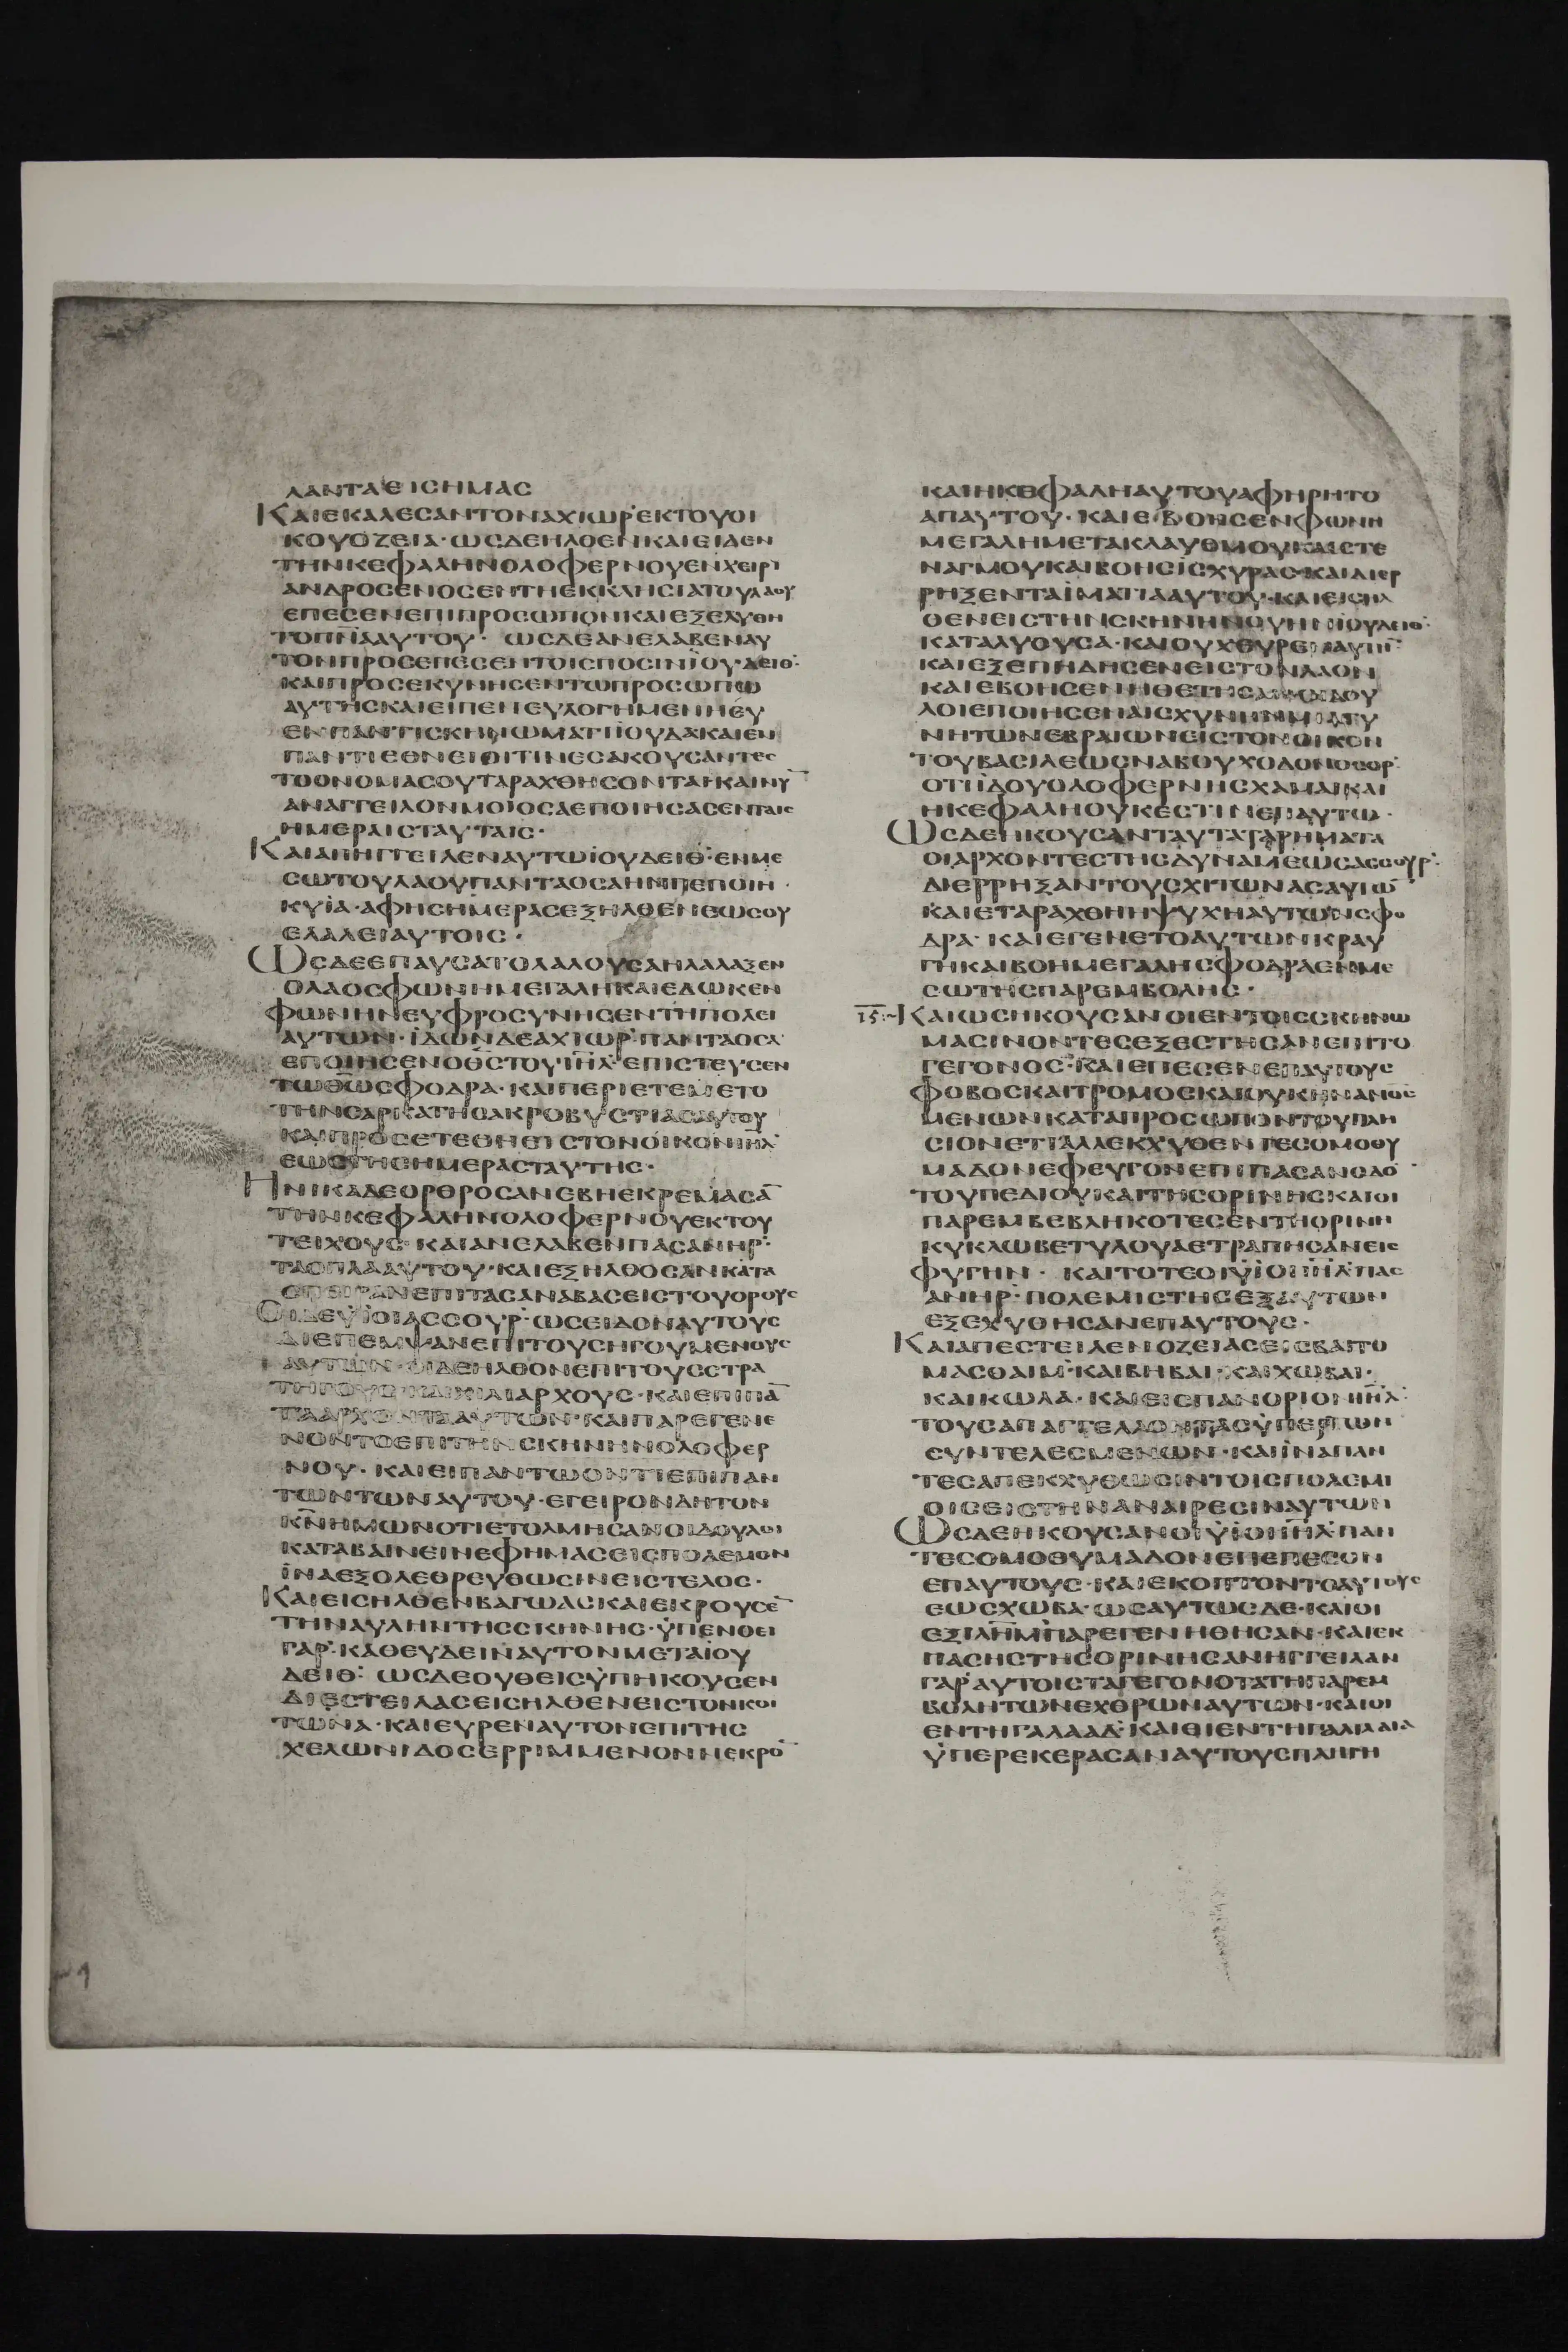 ΛΑΝΤΑΕΙCΗΜΑC
ΚΑΙΕΚΑΛΕCΑΝΤΟΝΑΧΙѠΡ ΕΚΤΟΥΟΙ
ΚΟΥΟΖΕΙΑ·ѠCΔΕΗΛΘΕΝΚΑΙΕΙΔΕΝ
ΤΗΝΚΕΦΑΛΗΝΟΛΟΦΕΡΝΟΥΕΝΧΕΙΡΙ
ΑΝΔΡΟCΕΝΟCΕΝΤΗΕΚΚΛΗCΙΑΤΟΥΛΑΟΥ
ΕΠΕCΕΝΕΠΙΠΡΟCѠΠΟΝΚΑΙΕΞΕΛΥΘΗ
ΤΟΠΝ̅ΑΑΥΤΟΥ· ѠCΔΕΑΝΕΛΑΒΕΝΑΥ
ΤΟΝΠΡΟCΕΠΕCΕΝΤΟΙCΠΟCΙΝΪΟΥΔΕΙΘ:
ΚΑΙΠΡΟCΕΚΥΝΗCΕΝΤѠΠΡΟCѠΠѠ
ΑΥΤΗCΚΑΙΕΙΠΕΝΕΥΛΟΓΗΜΕΝΗCΥ
ΕΝΠΑΝΤΙCΚΗΝѠΜΑΤΙΪΟΥΔΑΚΑΙΕΝ
ΠΑΝΤΙΕΘΝΕΙΟΙΤΙΝΕCΑΚΟΥCΑΝΤΕC
ΤΟΟΝΟΜΑCΟΥΤΑΡΑΧΘΗCΟΝΤΑΙ·ΚΑΙΝΥ̅
ΑΝΑΓΓΕΙΛΟΝΜΟΙΟCΑΕΠΟΙΗCΑCΕΝΤΑΙC
ΗΜΕΡΑΙCΤΑΥΤΑΙC·
ΚΑΙΑΠΗΓΓΕΙΛΕΝΑΥΤѠΪΟΥΔΕΙΘ:ΕΝΜΕ
CѠΤΟΥΛΑΟΥΠΑΝΤΑΟCΑΗΝΠΕΠΟΙΗ
ΚΥΪΑ·ΑΦΗCΗΜΕΡΑCΕΞΗΛΘΕΝΕѠCΟΥ
ΕΛΑΛΕΙΑΥΤΟΙC·
ѠCΔΕΕΠΑΥCΑΤΟΛΑΛΟΥCΑΗΛΑΛΑΞΕΝ
ΟΛΑΟCΦѠΝΗΜΕΓΑΛΗΚΑΙΕΔѠΚΕΝ
ΦѠΝΗΝΕΥΦΡΟCΥΝΗCΕΝΤΗΠΟΛΕΙ
ΑΥΤѠΝ·ΪΔѠΝΔΕΑΧΙѠΡ ΠΑΝΤΑΟCΑ
ΕΠΟΙΗCΕΝΟΘ̅C̅ΤΟΥΙΗ̅Λ ΕΠΙCΤΕΥCΕΝ
ΤѠΘ̅Ѡ̅CΦΟΔΡΑ·ΚΑΙΠΕΡΙΕΤΕΜΕΤΟ
ΤΗΝCΑΡΚΑΤΗCΑΚΡΟΒΥCΤΙΑCΑΥΤΟΥ
ΚΑΙΠΡΟCΕΤΕΘΗΕΙCΤΟΝΟΙΚΟΝΙΗ̅Λ
ΕѠCΤΗCΗΜΕΡΑCΤΑΥΤΗC·
ΗΝΙΚΑΔΕΟΡΘΡΟCΑΝΕΒΗΕΚΡΕΜΑCΑ̅
ΤΗΝΚΕΦΑΛΗΝΟΛΟΦΕΡΝΟΥΕΚΤΟΥ
ΤΕΙΧΟΥC·ΚΑΙΑΝΕΛΑΒΕΝΠΑCΑΝΗΡ
ΤΑΟΠΛΑΑΥΤΟΥ·ΚΑΙΕΞΗΛΘΟCΑΝΚΑΤΑ
CΠΕΙΡΑΝΕΠΙΤΑCΑΝΑΒΑCΕΙCΤΟΥΟΡΟΥC
ΟΙΔΕΫΪΟΙΑCCΟΥΡ·ѠCΕΙΔΟΝΑΥΤΟΥC
ΔΙΕΠΕΜΨΑΝΕΠΙΤΟΥCΗΓΟΥΜΕΝΟΥC
ΑΥΤѠΝ·ΟΙΔΕΗΛΘΟΝΕΠΙΤΟΥCCΤΡΑ
ΤΗΓΟΥCΚΑΙΧΙΛΙΑΡΧΟΥC·ΚΑΙΕΠΙΠΑ̅
ΤΑΑΡΧΟΝΤΑΑΥΤѠΝ·ΚΑΙΠΑΡΕΓΕΝΕ
ΝΟΝΤΟΕΠΙΤΗΝCΚΗΝΗΝΟΛΟΦΕΡ
ΝΟΥ·ΚΑΙΕΙΠΑΝΤѠΟΝΤΙΕΠΙΠΑΝ
ΤѠΝΤѠΝΑΥΤΟΥ·ΕΓΕΙΡΟΝΔΗΤΟΝ
ΚΝ̅ΗΜѠΝΟΤΙΕΤΟΛΜΗCΑΝΟΙΔΟΥΛΟΙ
ΚΑΤΑΒΑΙΝΕΙΝΕΦΗΜΑCΕΙCΠΟΛΕΜΟΝ
ΪΝΑΕΞΟΛΕΘΡΕΥΘѠCΙΝΕΙCΤΕΛΟC·
ΚΑΙΕΙCΗΛΘΕΝΒΑΓѠΑCΚΑΙΕΚΡΟΥCΕ̅
ΤΗΝΑΥΛΗΝΤΗCCΚΗΝΗC·ΫΠΕΝΟΕΙ
ΓΑΡ ΚΑΘΕΥΔΕΙΝΑΥΤΟΝΜΕΤΑΪΟΥ
ΔΕΙΘ: ѠCΔΕΟΥΘΕΙCΫΠΗΚΟΥCΕΝ
ΔΙΕCΤΕΙΛΑCΕΙCΗΛΘΕΝΕΙCΤΟΝΚΟΙ
ΤѠΝΑ·ΚΑΙΕΥΡΕΝΑΥΤΟΝΕΠΙΤΗC
ΧΕΛѠΝΙΔΟCΕΡΡΙΜΜΕΝΟΝΝΕΚΡΟ̅
ΚΑΙΗΚΕΦΑΛΗΑΥΤΟΥΑΦΗΡΗΤΟ
ΑΠΑΥΤΟΥ·ΚΑΙΕΒΟΗCΕΝΦѠΝΗ
ΜΕΓΑΛΗΜΕΤΑΚΛΑΥΘΜΟΥΚΑΙCΤΕ
ΝΑΓΜΟΥΚΑΙΒΟΗCΙCΧΥΡΑC·ΚΑΙΔΙΕΡ
ΡΗΞΕΝΤΑΪΜΑΤΙΑΑΥΤΟΥ·ΚΑΙΕΙCΗΛ
ΘΕΝΕΙCΤΗΝCΚΗΝΗΝΟΥΗΝΪΟΥΔΕΙΘ:
ΚΑΤΑΛΥΟΥCΑ·ΚΑΙΟΥΧΕΥΡΕΝΑΥΤΗ̅
ΚΑΙΕΞΕΠΗΔΗCΕΝΕΙCΤΟΝΛΑΟΝ
ΚΑΙΕΒΟΗCΕΝΗΘΕΤΗCΑΝΟΙΔΟΥ
ΛΟΙΕΠΟΙΗCΕΝΑΙCΧΥΝΗΝΜΙΑΓΥ
ΝΗΤѠΝΕΒΡΑΙѠΝΕΙCΤΟΝΟΙΚΟΝ
ΤΟΥΒΑCΙΛΕѠCΝΑΒΟΥΧΟΔΟΝΟCΟΡ
ΟΤΙΪΔΟΥΟΛΟΦΕΡΝΗCΧΑΜΑΙΚΑΙ
ΗΚΕΦΑΛΗΟΥΚΕCΤΙΝΕΠΑΥΤѠ·
ѠCΔΕΗΚΟΥCΑΝΤΑΥΤΑΤΑΡΗΜΑΤΑ
ΟΙΑΡΧΟΝΤΕCΤΗCΔΥΝΑΜΕѠCΑCCΟΥΡ
ΔΙΕΡΡΗΞΑΝΤΟΥCΧΙΤѠΝΑCΑΥΤѠ̅
ΚΑΙΕΤΑΡΑΧΘΗΗΨΥΧΗΑΥΤѠΝCΦΟ
ΔΡΑ· ΚΑΙΕΓΕΝΕΤΟΑΥΤѠΝΚΡΑΥ
ΓΗΚΑΙΒΟΗΜΕΓΑΛΗCΦΟΔΡΑΕΝΜΕ
CѠΤΗCΠΑΡΕΜΒΟΛΗC·
15·ΚΑΙѠCΗΚΟΥCΑΝΟΙΕΝΤΟΙCCΚΗΝѠ
ΜΑCΙΝΟΝΤΕCΕΞΕCΤΗCΑΝΕΠΙΤΟ
ΓΕΓΟΝΟC·ΚΑΙΕΠΕCΕΝΕΠΑΥΤΟΥC
ΦΟΒΟCΚΑΙΤΡΟΜΟCΚΑΙΟΥΚΗΝΑΝΟC
ΜΕΝѠΝΚΑΤΑΠΡΟCѠΠΟΝΤΟΥΠΛΗ
CΙΟΝΕΤΙΑΛΛΕΚΧΥΘΕΝΤΕCΟΜΟΘΥ
ΜΑΔΟΝΕΦΕΥΓΟΝΕΠΙΠΑCΑΝΟΔΟ̅
ΤΟΥΠΕΔΙΟΥΚΑΙΤΗCΟΡΙΝΗCΚΑΙΟΙ
ΠΑΡΕΜΒΕΒΛΗΚΟΤΕCΕΝΤΗΟΡΙΝΗ
ΚΥΚΛѠΒΕΤΥΛΟΥΑΕΤΡΑΠΗCΑΝΕΙC
ΦΥΓΗΝ· ΚΑΙΤΟΤΕΟΙΫΙΟΙΙΗ̅Λ ΠΑC
ΑΝΗΡ ΠΟΛΕΜΙCΤΗCΕΞΑΥΤѠΝ
ΕΞΕΧΥΘΗCΑΝΕΠΑΥΤΟΥC·
ΚΑΙΑΠΕCΤΕΙΛΕΝΟΖΕΙΑCΕΙCΒΑΙΤΟ
ΜΑCΘΑΙΜ·ΚΑΙΒΗΒΑΙ·ΚΑΙΧѠΒΑΙ·
ΚΑΙΚѠΛΑ·ΚΑΙΕΙCΠΑΝΟΡΙΟΝΙΗ̅Λ
ΤΟΥCΑΠΑΓΓΕΛΛΟΝΤΑCΫΠΕΡΤѠΝ
CΥΝΤΕΛΕCΜΕΝѠΝ·ΚΑΙΪΝΑΠΑΝ
ΤΕCΑΠΕΚΧΥΘѠCΙΝΤΟΙCΠΟΛΕΜΙ
ΟΙCΕΙCΤΗΝΑΝΑΙΡΕCΙΝΑΥΤѠΝ
ѠCΔΕΗΚΟΥCΑΝΟΙΫΙΟΙΙΗ̅Λ ΠΑΝ
ΤΕCΟΜΟΘΥΜΑΔΟΝΕΠΕΠΕCΟΝ
ΕΠΑΥΤΟΥC·ΚΑΙΕΚΟΠΤΟΝΤΟΑΥΤΟΥC
ΕѠCΧѠΒΑ·ѠCΑΥΤѠCΔΕ·ΚΑΙΟΙ
ΕΞΙΛΗ̅Μ ΠΑΡΕΓΕΝΗΘΗCΑΝ·ΚΑΙΕΚ
ΠΑCΗCΤΗCΟΡΙΝΗCΑΝΗΓΓΕΙΛΑΝ
ΓΑΡ ΑΥΤΟΙCΤΑΓΕΓΟΝΟΤΑΤΗΠΑΡΕΜ
ΒΟΛΗΤѠΝΕΧΘΡѠΝΑΥΤѠΝ·ΚΑΙΟΙ
ΕΝΤΗΓΑΛΑΑΔ·ΚΑΙΟΙΕΝΤΗΓΑΛΙΛΑΙΑ
ΫΠΕΡΕΚΕΡΑCΑΝΑΥΤΟΥCΠΛΗΓΗ